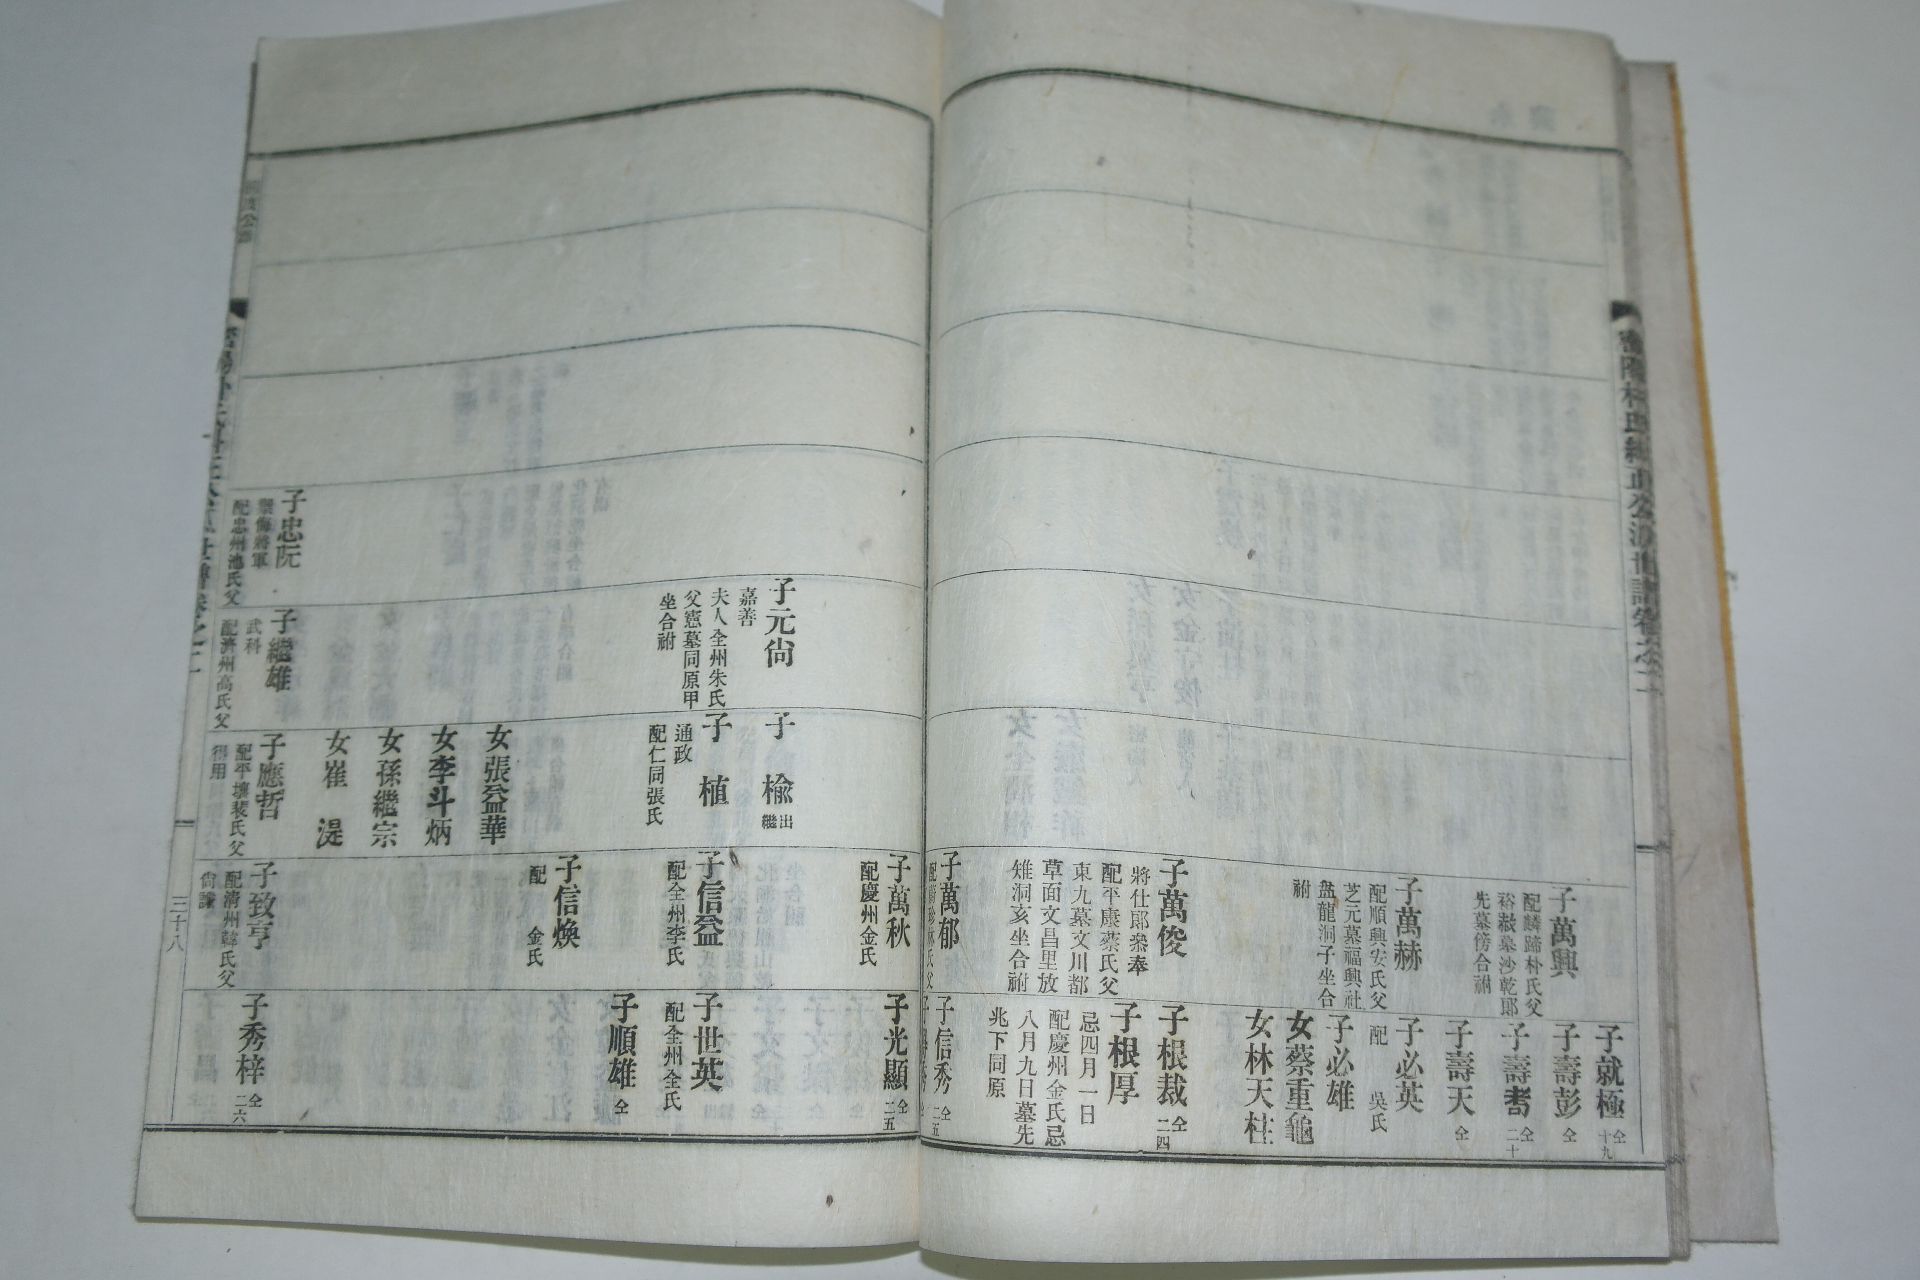 子就極
仝十九
子壽彭
仝
子壽耉
仝二十
子壽天
仝
子萬興
配麟蹄朴氏父
先墓傍合祔
子必英
配 吳氏
子必雄
女蔡重龜
女林天柱
子萬赫
配順興安氏父
芝元墓福興社
盘龍洞子坐合
祔
子根裁
仝二四
子根厚
忌四月一日
配慶州金氏忌
八月九日墓先
兆下同原
子萬俊
將仕郎叅奉
配平康蔡氏父
東九墓文川都
草面文昌里放
雉洞亥坐合祔
子信秀
仝二五
子萬郁
子光顯
仝二五
子萬秋
配慶州金氏
子元尙
嘉善
夫人全州朱氏
父憲墓同原甲
坐合祔
子 楡
出繼
子 植
通政
配仁同張氏
子信益
配全州李氏
子世英
配全州全氏
子順雄
仝
子信煥
配 金氏
女張益華
女李斗炳
女孫繼宗
女崔 湜
子忠阮
禦侮將軍
配忠州池氏父
子繼雄
武科
配濟州高氏父
子應哲
配平壤裴氏父
得用
子致亨
配淸州韓氏父
尙謙
子秀梓
仝二六
三十八